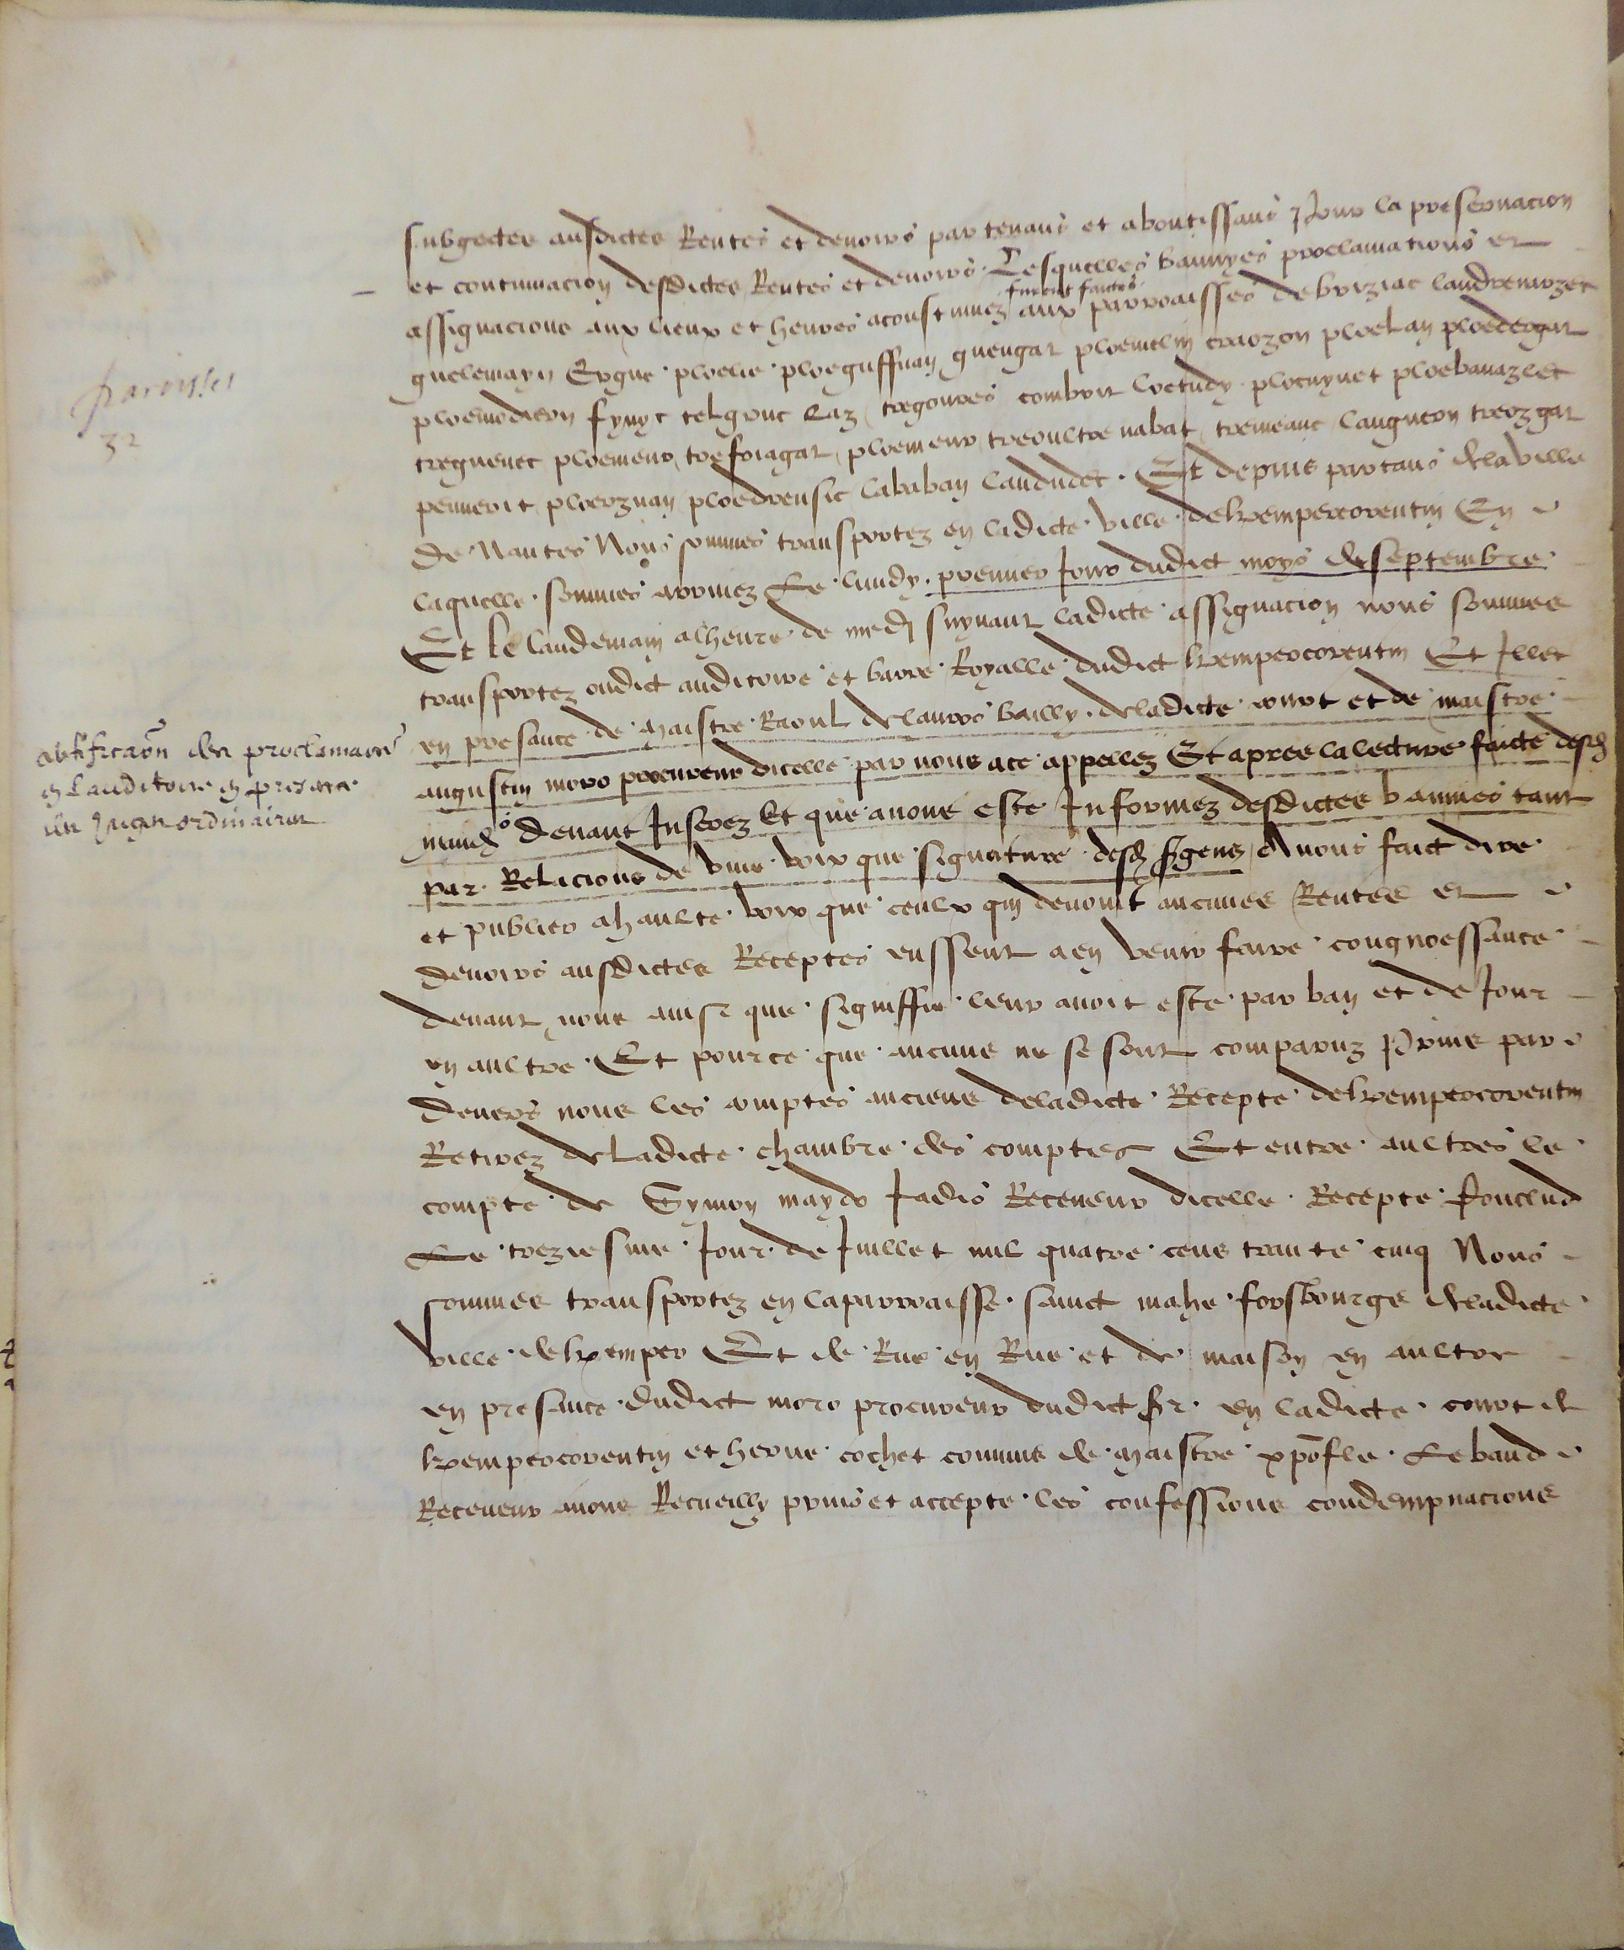 subgectes ausdictes Rentes et devoirs par tenans et aboutissans pour la preservacion
et continuacion desdictes Rentes et devoirs. Lesquelles bannyes proclamations et
furent faictes
assignacions aux lieux et heures acoustumez aux parroaisses de briziac landrevarzec
guelemayn Ergue ploelie ploeguffuan guengat ploemelin crauzon ploelan ploedergat
parroisses
32
ploemodiern fynyt telgruc Laz tregourez combrit loctudy plouynet ploebanazlec
treguenec ploemeur treffiagat ploemeur treoultre nabat tremeauc languron treozgat
penmerit ploerznay ploedreusic lababan landudec. Et depuis partans de la ville
de Nantes Nous sommes transportez en ladicte ville de kempercorentin En
laquelle sommes arrivez Le lundy premier Jour dudict moys de septembre
Et le landemain a lheure de medi suyvant ladicte assignacion nous sommes
transportez oudict auditoire et barre Royalle dudict kempercorentin Et Illec
en presance de maistre Raoul de lauros bailly de ladicte court et de maistre
augustin moro procureur dicelle par nous a ce appellez Et apres la lecture faicte desd
mand devant Inserez Et que avons este Informez desdictes bannies tant
par Relacions de vive voix que signature desd sergens Avons faict dire
et publier a haulte voix que ceulx qui devoint aucunes Rentes et
devoirs ausdictes Receptes eussent a en venir faire congnoessance
devant nous ainsi que signiffie leur avoit este par ban et de Jour
en aultre. Et pource que aucuns ne se sont comparuz Prins par
devers nous les comptes anciens de ladicte Recepte de kempercorentin
Retirez de ladicte chambre des comptes Et entre aultres le
compte de Symon maydo Jadis Receveur dicelle Recepte Conclud
Le treziesme Jour de Juillet mil quatre cens trante cinq Nous
sommes transportez en la parroaisse sainct mahe forsbourgs de ladicte
ville de kemper Et de Rue en Rue et de maison en aultre
en presance dudict moro procureur dudict sr en ladicte court de
kempercorentin et herve cochet commis de maistre xpofle Le baud
Receveur avons Recueilly prins et accepte les confessions condempnacions